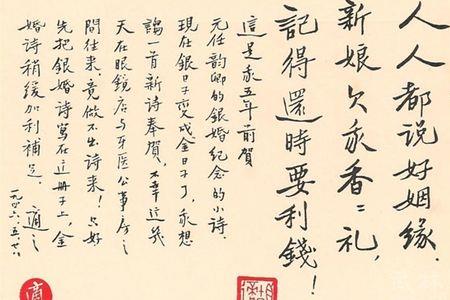 人人都说好姻缘.
新娘欠我香々礼,
記得還時要利錢！
這是我五年前賀
元任韵卿的銀婚紀念的小诗.
現在銀日子变成金日子了,我想
謅一首新诗奉賀,不幸這幾
天在眼鏡店与牙医公事房之
間往来,竟做不出诗来！只好
先把銀婚诗寫在這册子上,金
婚诗稍缓加利補足.
適之
一九四六.五.廿六
適